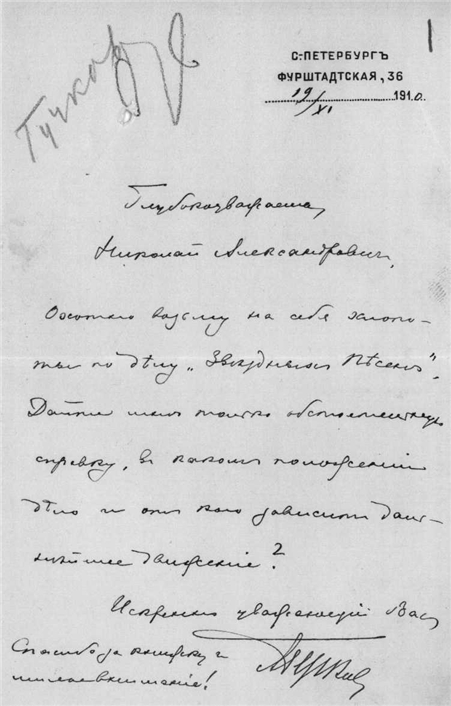 Гучков
1
С.-ПЕТЕРБУРГЪ
ФУРШТАДТСКАЯ, 36
19/XI 1910.
Глубокоуважаемый
Николай Александровичъ,
Охотно возьму на себя хлопо-
ты по дѣлу „Звѣздныхъ Пѣсенъ".
Дайте мнѣ только обстоятельную
справку, въ какомъ положеніи
дѣло и отъ кого зависитъ даль-
нѣйшее движеніе?
Искренно уважающій Васъ
АГучковъ
Спасибо за книжку и
милое вниманіе!